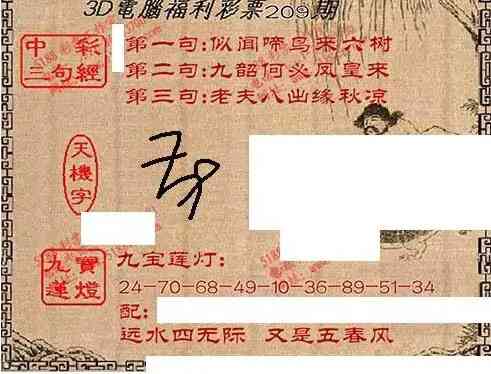 3D電腦福利彩票209期
中彩
三句經
第一句:似闻啼鸟来六树
第二句:九韶何必凤皇来
第三句:老夫八出缘秋凉
天機字
九寶
蓮燈
九宝莲灯:
24-70-68-49-10-36-89-51-34
配:
远水四无际 又是五春风